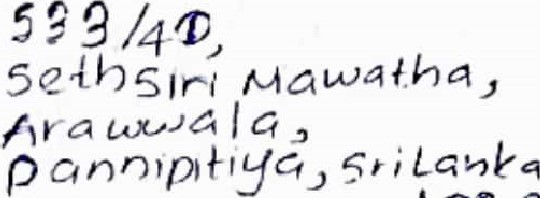 533/4D,
Sethsiri Mawatha,
Arawwala,
Pannipitiya, Sri Lanka